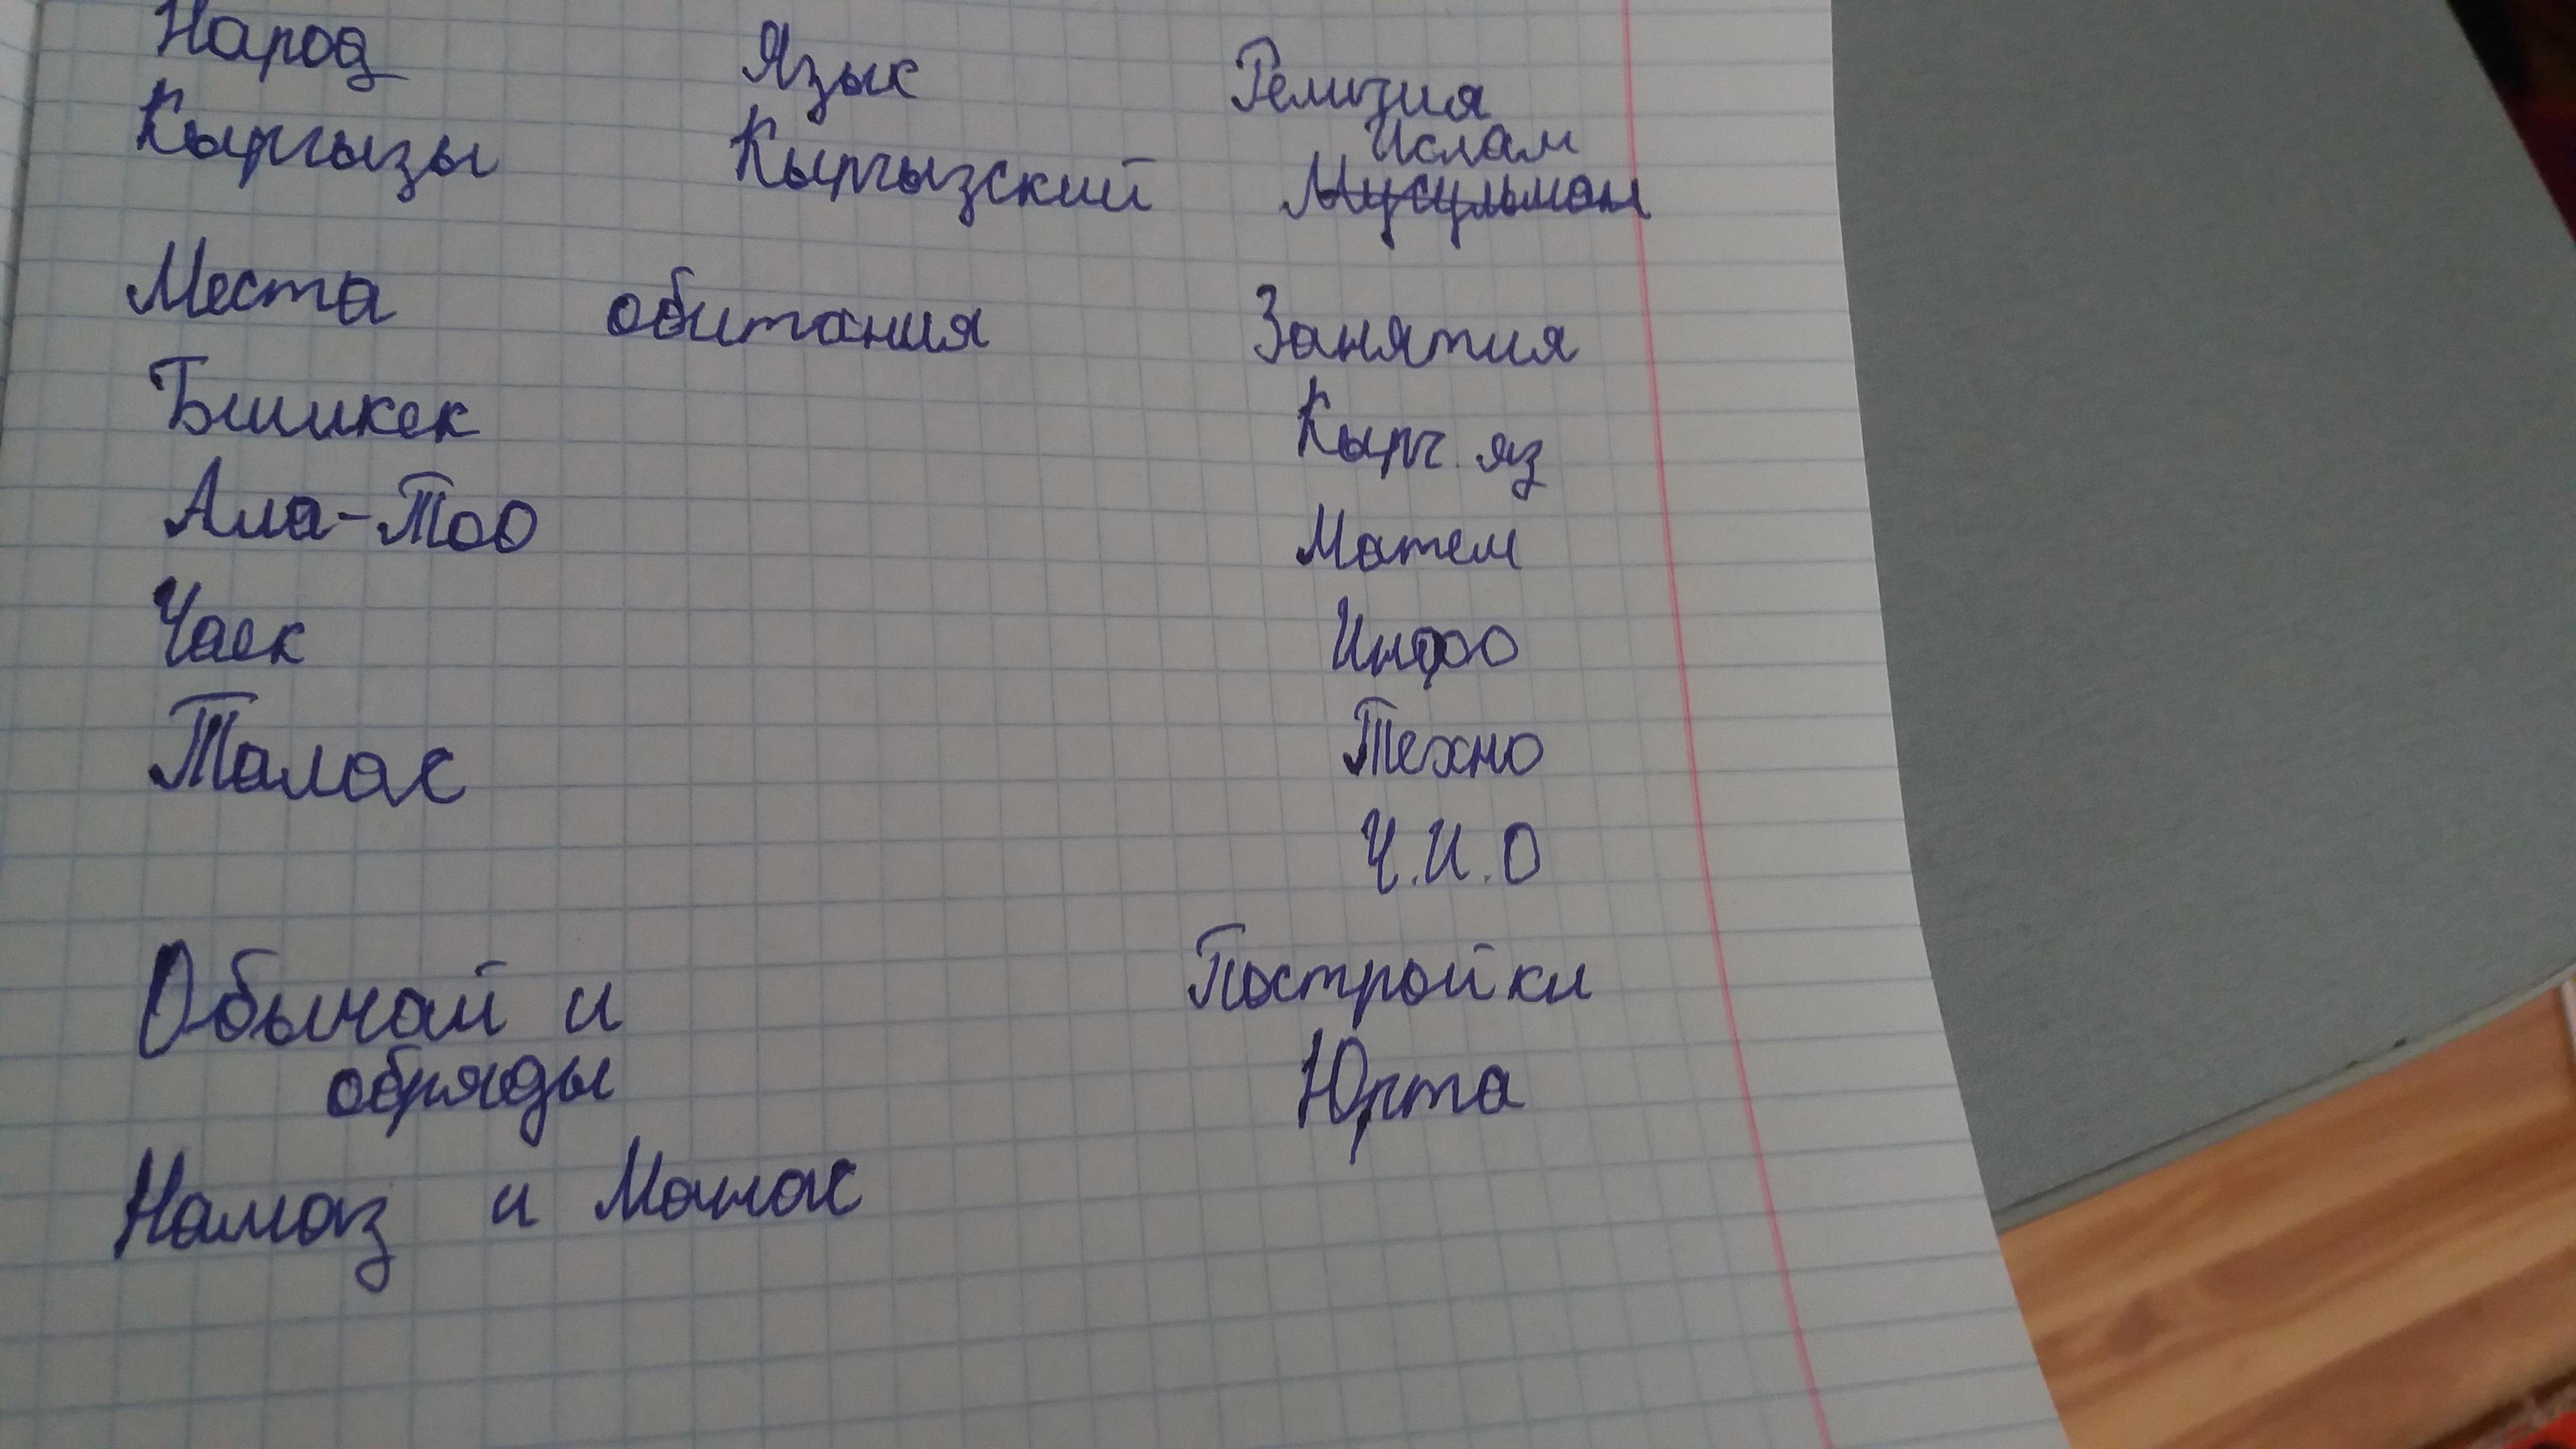 Народ Язык Религия
Кыргызы Кыргызский Ислам
Мусульман
Места обитания Занятия
Бишкек Кырг. яз
Ала-Тоо Матем
Чаек Инфо
Талас Техно
Ч.И.О
Обычай и Постройки
обряды Юрта
Намаз и